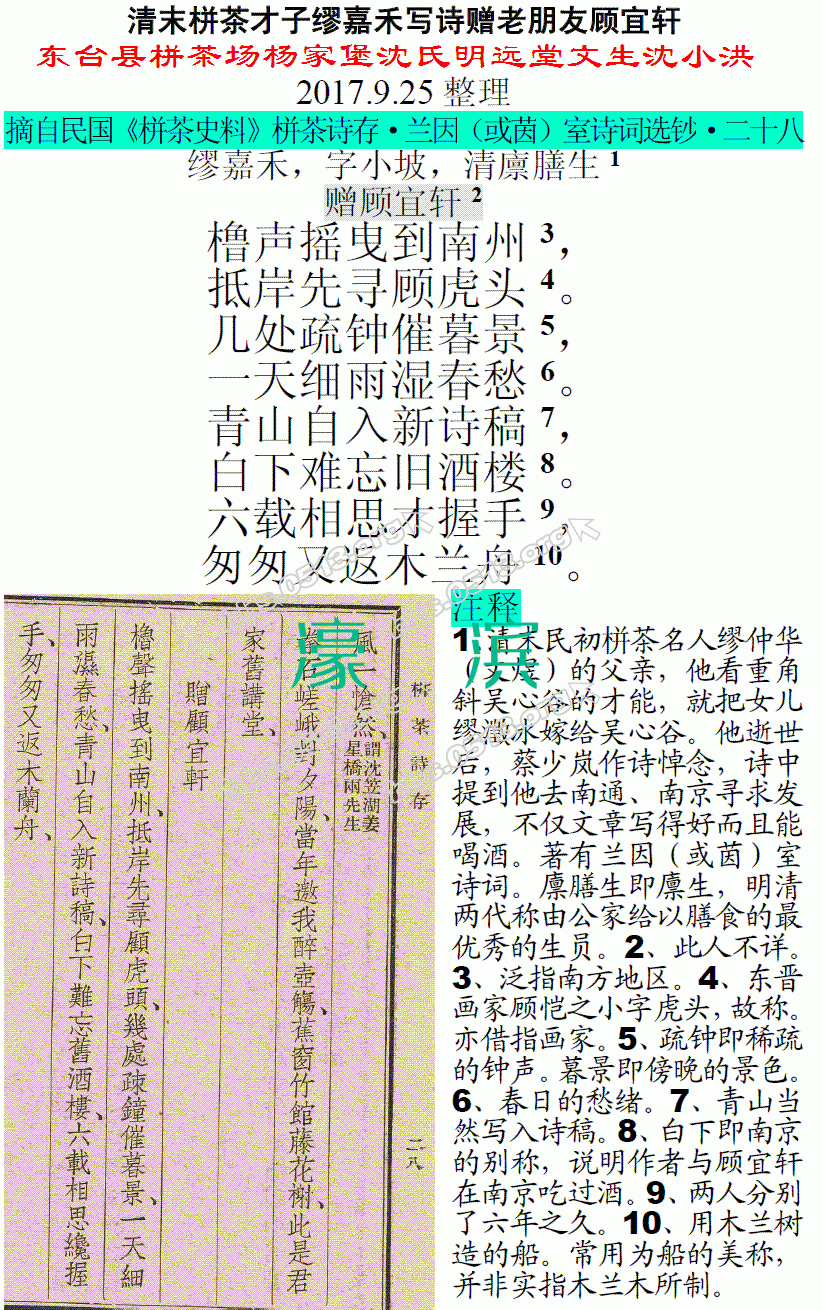 清末栟茶才子缪嘉禾写诗赠老朋友顾宜轩
东台县栟茶场杨家堡沈氏明远堂文生沈小洪
2017.9.25 整理
摘自民国《栟茶史料》栟茶诗存·兰因（或茵）室诗词选钞·二十八
缪嘉禾，字小坡，清廪膳生 1
赠顾宜轩 2
橹声摇曳到南州 3，
抵岸先寻顾虎头 4。
几处疏钟催暮景 5，
一天细雨湿春愁 6。
青山自入新诗稿 7，
白下难忘旧酒楼 8。
六载相思才握手 9，
匆匆又返木兰舟 10。
栟茶詩存
二八
風一愴然、謂沈笠湖姜星橋兩先生
嵯峨對夕陽、當年邀我醉壺觴、蕉窗竹館藤花榭、此是君
家舊講堂、
贈顧宜軒
櫓聲搖曳到南州、抵岸先尋顧虎頭、幾處疎鐘催暮景、一天細
雨濕春愁、青山自入新詩稿、白下難忘舊酒樓、六載相思纔握
手、匆匆又返木蘭舟、
濠滨
注释
1、清末民初栟茶名人缪仲华
（文煜）的父亲，他看重角
斜吴心谷的才能，就把女儿
缪澂冰嫁给吴心谷。他逝世
后，蔡少岚作诗悼念，诗中
提到他去南通、南京寻求发
展，不仅文章写得好而且能
喝酒。著有兰因（或茵）室
诗词。廪膳生即廪生，明清
两代称由公家给以膳食的最
优秀的生员。2、此人不详。
3、泛指南方地区。4、东晋
画家顾恺之小字虎头，故称。
亦借指画家。5、疏钟即稀疏
的钟声。暮景即傍晚的景色。
6、春日的愁绪。7、青山当
然写入诗稿。8、白下即南京
的别称，说明作者与顾宜轩
在南京吃过酒。9、两人分别
了六年之久。10、用木兰树
造的船。常用为船的美称，
并非实指木兰木所制。